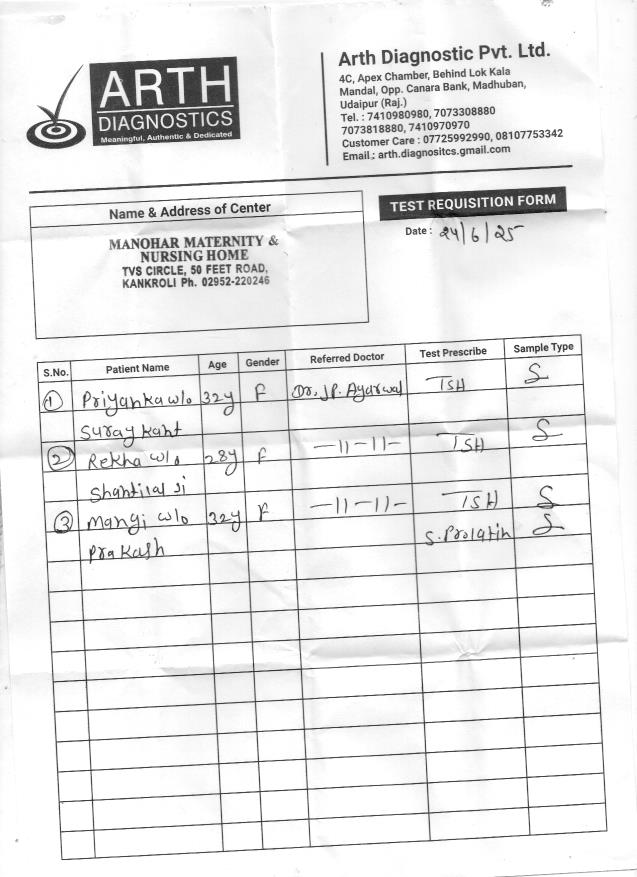 ARTH
DIAGNOSTICS
Meaningful, Authentic & Dedicated
Arth Diagnostic Pvt. Ltd.
4C, Apex Chamber, Behind Lok Kala
Mandal, Opp. Canara Bank, Madhuban,
Udaipur (Raj.)
Tel. : 7410980980, 7073308880
7073818880, 7410970970
Customer Care : 07725992990, 08107753342
Email.: arth.diagnositcs.gmail.com
Name & Address of Center
MANOHAR MATERNITY &
NURSING HOME
TVS CIRCLE, 50 FEET ROAD,
KANKROLI Ph. 02952-220246
TEST REQUISITION FORM
Date : 24/6/25
S.No. Patient Name Age Gender Referred Doctor Test Prescribe Sample Type
1 Priyanka w/o 32y F Dr. J.P. Agarwal TSH S
Suraykant
2 Rekha w/o 28y F -11-11- TSH S
Shantilal Ji
3 Mangi w/o 32y F -11-11- TSH S
Prakash S. Prolatin S